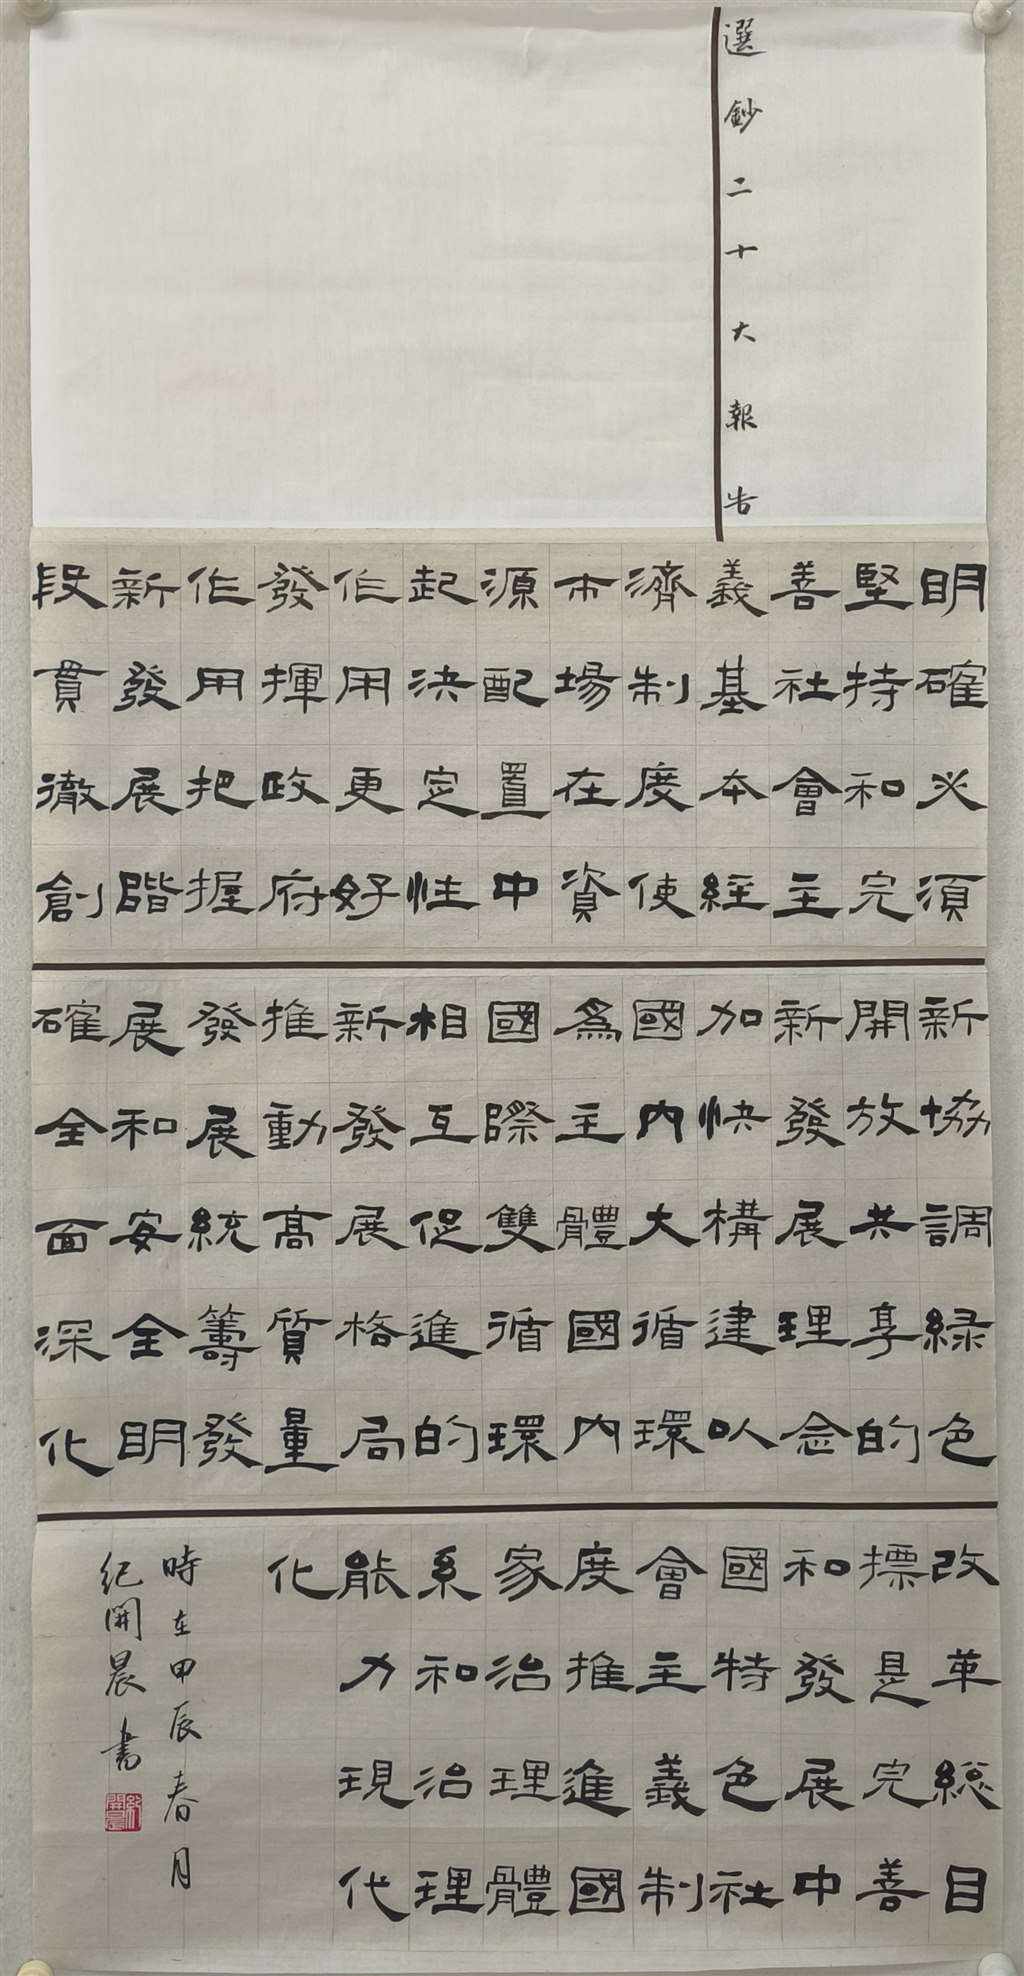 選鈔二十大報告
明確必須
堅持和完
善社會主
義基本經
濟制度使
市場在資
源配置中
起決定性
作用更好
發揮政府
作用把握
新發展階
段貫徹創
新協調緑色
開放共享的
新發展理念
加快構建以
國内大循環
爲主體國内
國際雙循環
相互促進的
新發展格局
推動高質量
發展統籌發
展和安全明
確全面深化
改革總目
標是完善
和發展中
國特色社
會主義制
度推進國
家治理體
系和治理
能力現代
化
時在甲辰春月
紀開晨書